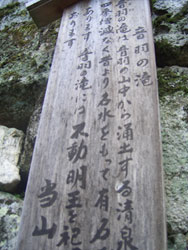 音羽の滝
音羽の滝は音羽の山中から涌出する清泉
四季増減なく昔より名水をもって有名
であります音羽の滝には不動明王を祀
てあります
当山